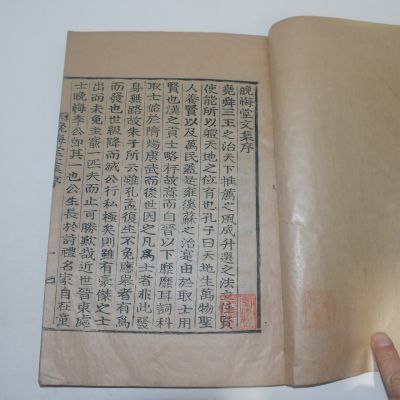 晚悔堂文集序
堯舜三王之治天下推薦之風成升選之法立任賢
使能所以贊天地之位育也孔子曰天地生萬物聖
人養賢以及萬民蓋是雍煕蘇之治寔由於取士用
賢也漢之貢士略存故意而自晉以下靡靡耳詞科
取士始於隋煬唐武而後世因之凡爲士者非此發
身無路故朱子所云雖孔孟復生不免應擧者有爲
而發也世級降而滅公行私極矣則雖有豪傑之士
出而未免圭竇一匹夫而止可勝歎哉近世晉東處
士晚悔李公卽其一也公生長於詩禮名家自在童
晚悔堂文集序